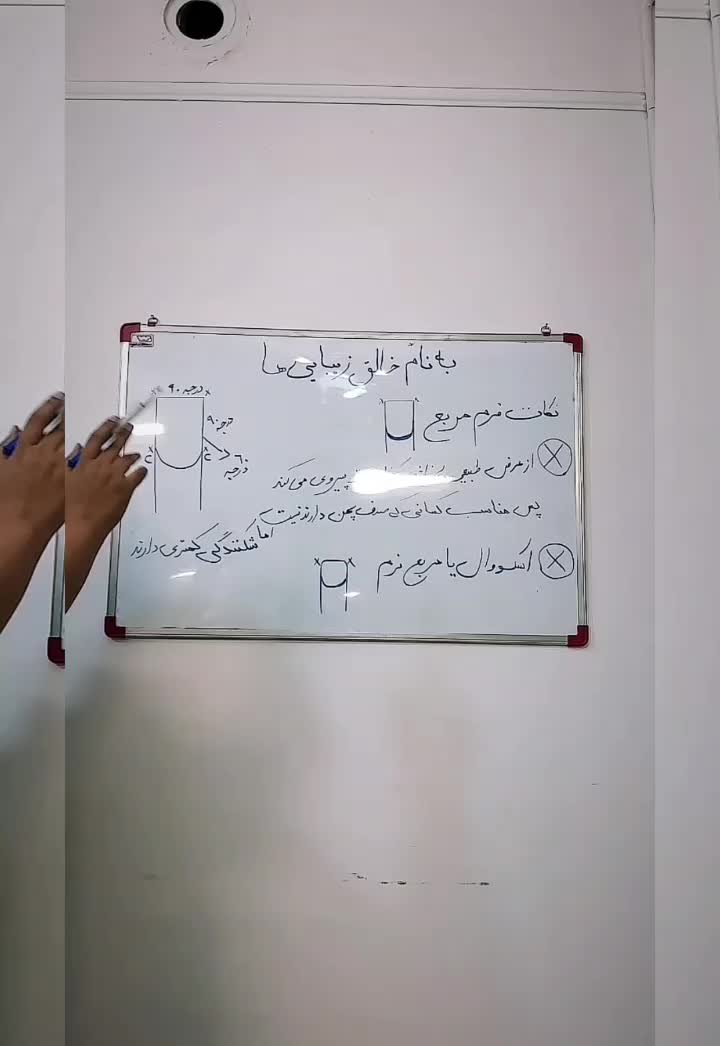 به نام خالق زیبایی ها
نکات فرم مربع
از عرض طبیعی پیروی می کند
پس مناسب کسانی که صدف پهن دارند نیست
اما شکنندگی کمتری دارند
اسکووال یا مربع نرم
۹۰ درجه
۹۰ درجه
۶۰ درجه
C
C